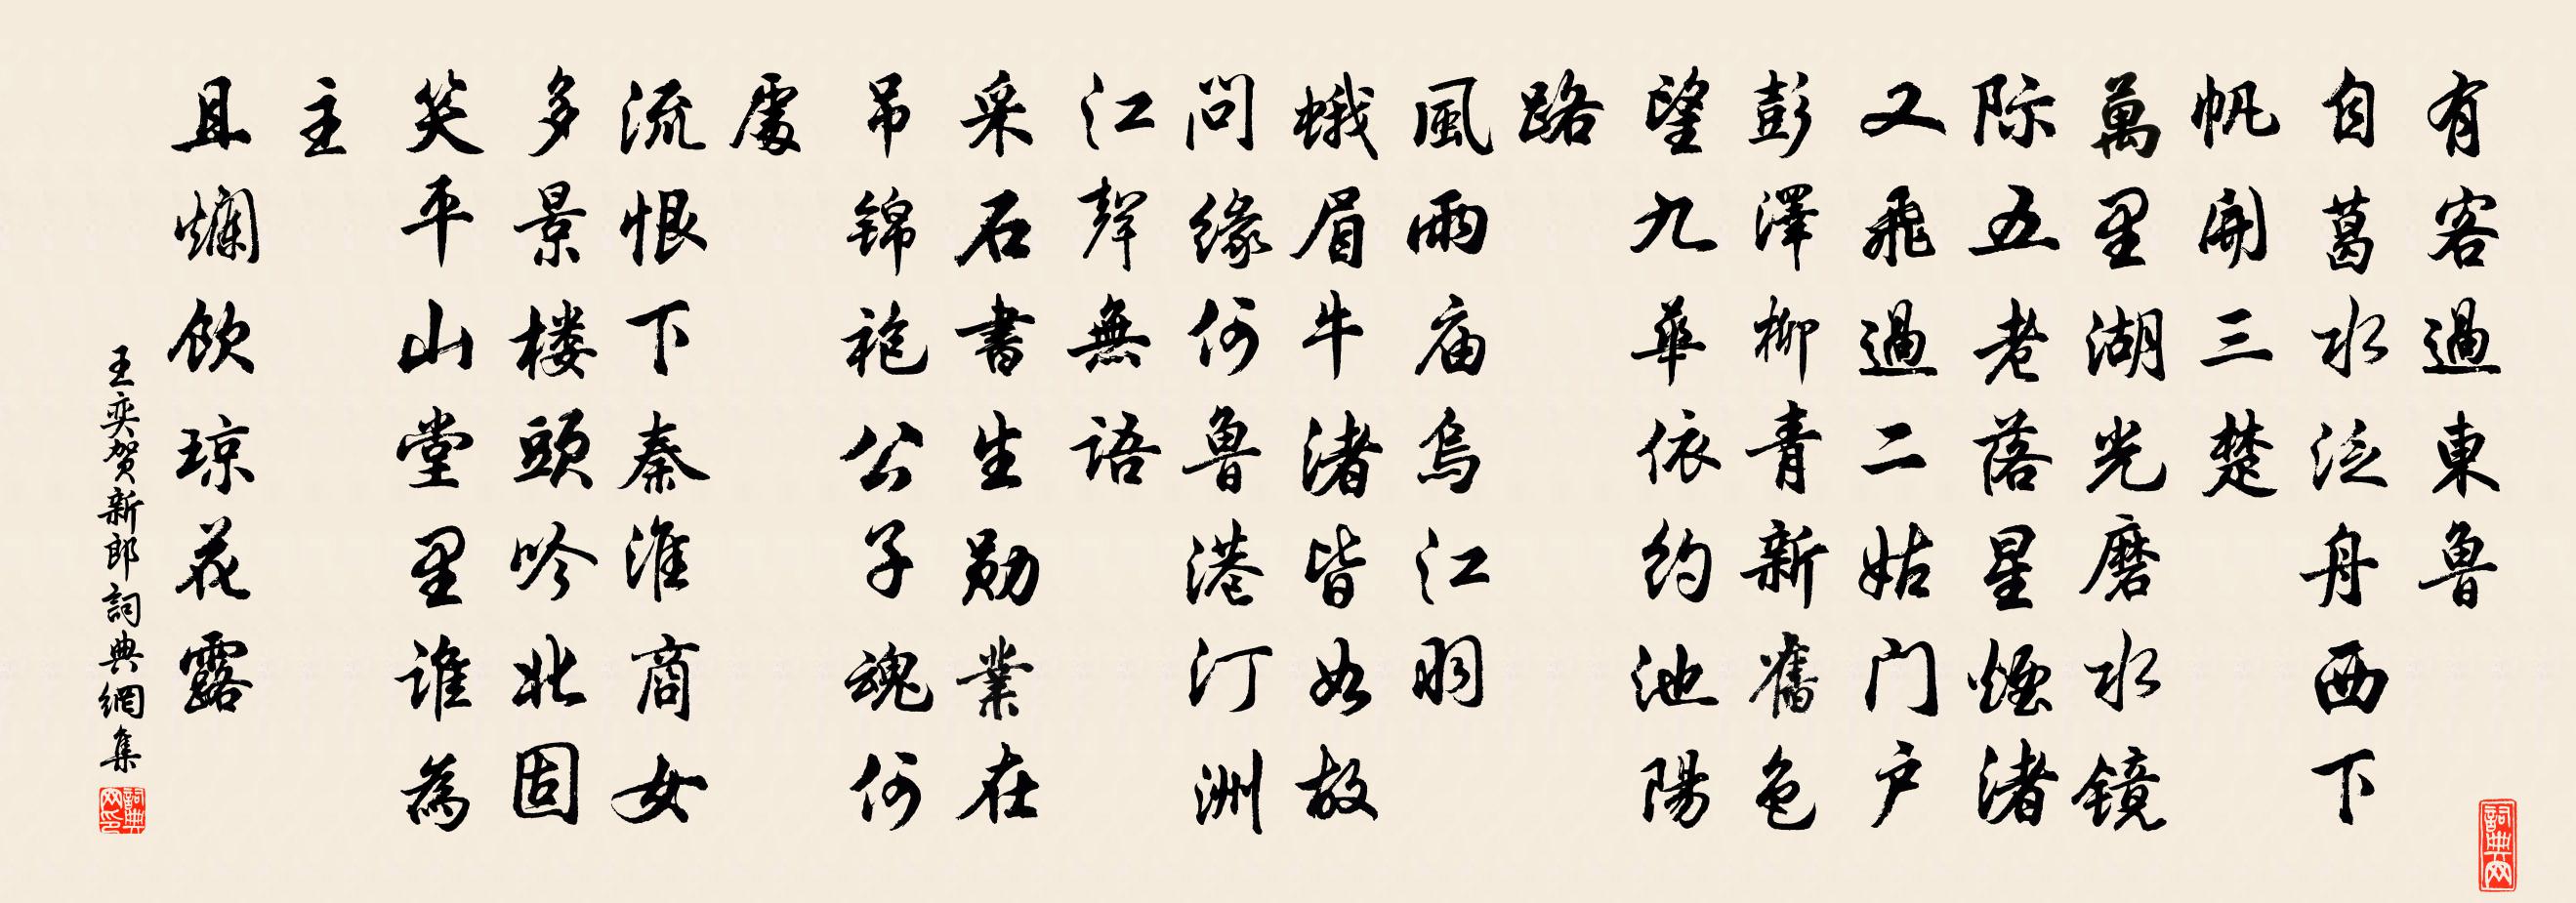 有客過東鲁
自葛水泛舟西下
帆開三楚
萬里湖光磨水镜
际五老落星煙渚
又飛過二姑门户
彭澤柳青新舊色
望九華依约池陽
路
風雨庙烏江羽
蛾眉牛渚皆如故
问缘何鲁港汀洲
江聲無语
采石書生勋業在
吊锦袍公子魂何
處
流恨下秦淮商女
多景楼頭吟北固
笑平山堂里谁為
主
且爛饮琼花露
王奕贺新郎詞典網集
詞典网印
詞典网